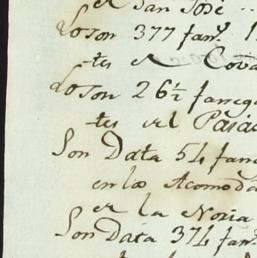 el San José ..
Loson 377 fan.s
tes el Cova
Loson 26½ fanega
tes el Pajar
Son Data 54 fane
en los Acomoda
el la Noria
Son Data 374 fan.s